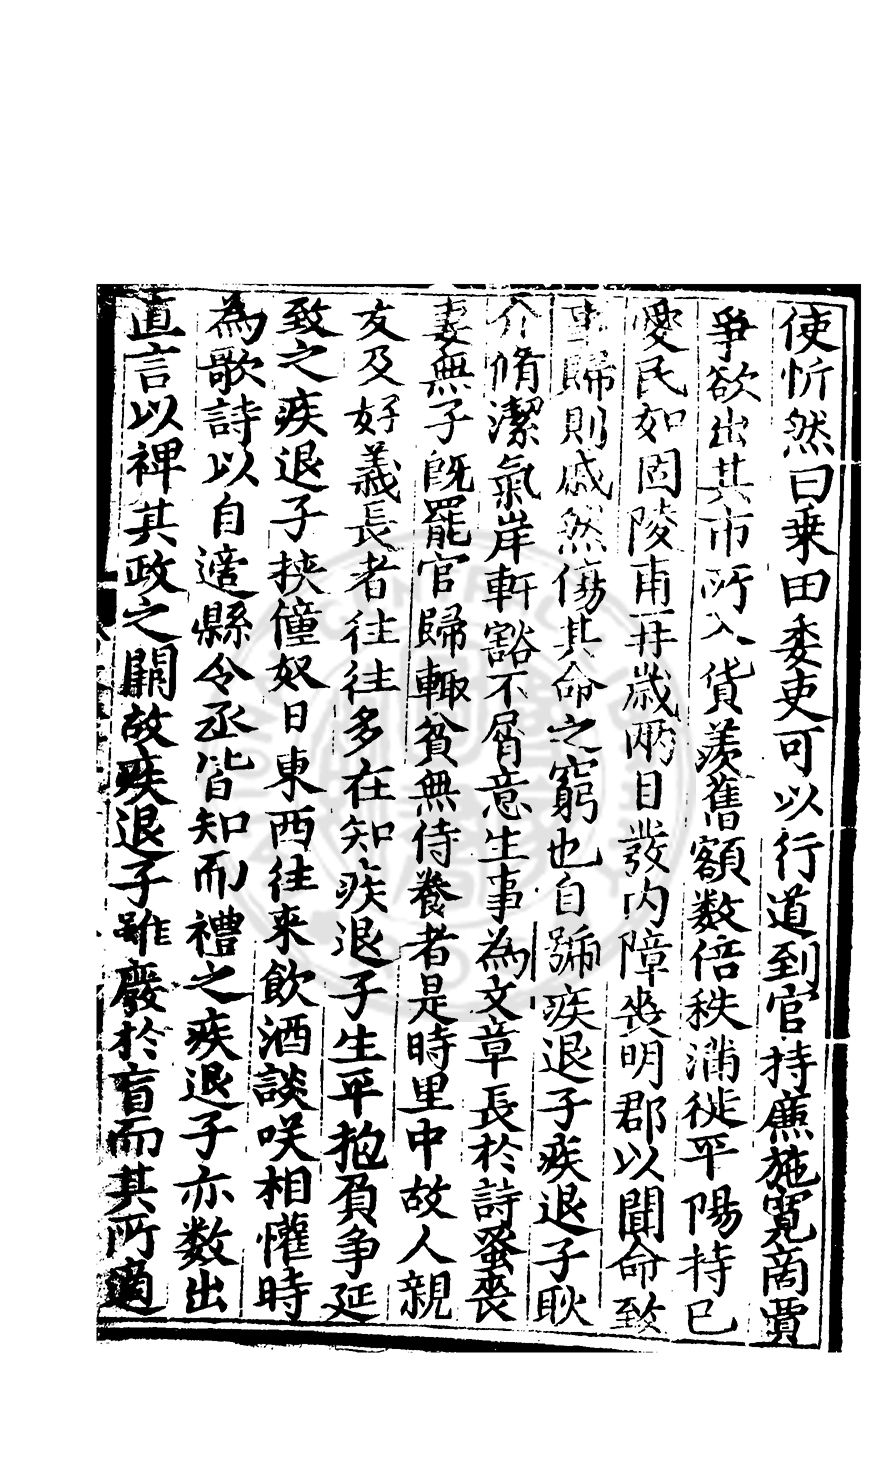 使忻然曰乗田委吏可以行道到官持廉施寛啇賈
爭欲出其市所入貨羨舊額数倍秩滿徙平陽持已
愛民如固陵甫再歲兩目發内障丧明郡以聞命致
事歸則戚然傷其命之窮也自號疾退子疾退子耿
介脩潔氣岸軒豁不屑意生事為文章長於詩蚤丧
妻無子旣罷官歸輙貧無侍養者是時里中故人親
友及好義長者往往多在知疾退子生平抱負争延
致之疾退子挟僮奴日東西往来飲酒談咲相懽時
為歌詩以自適縣令丞皆知而禮之疾退子亦数出
直言以裨其政之闕故疾退子雖廢於盲而其所適